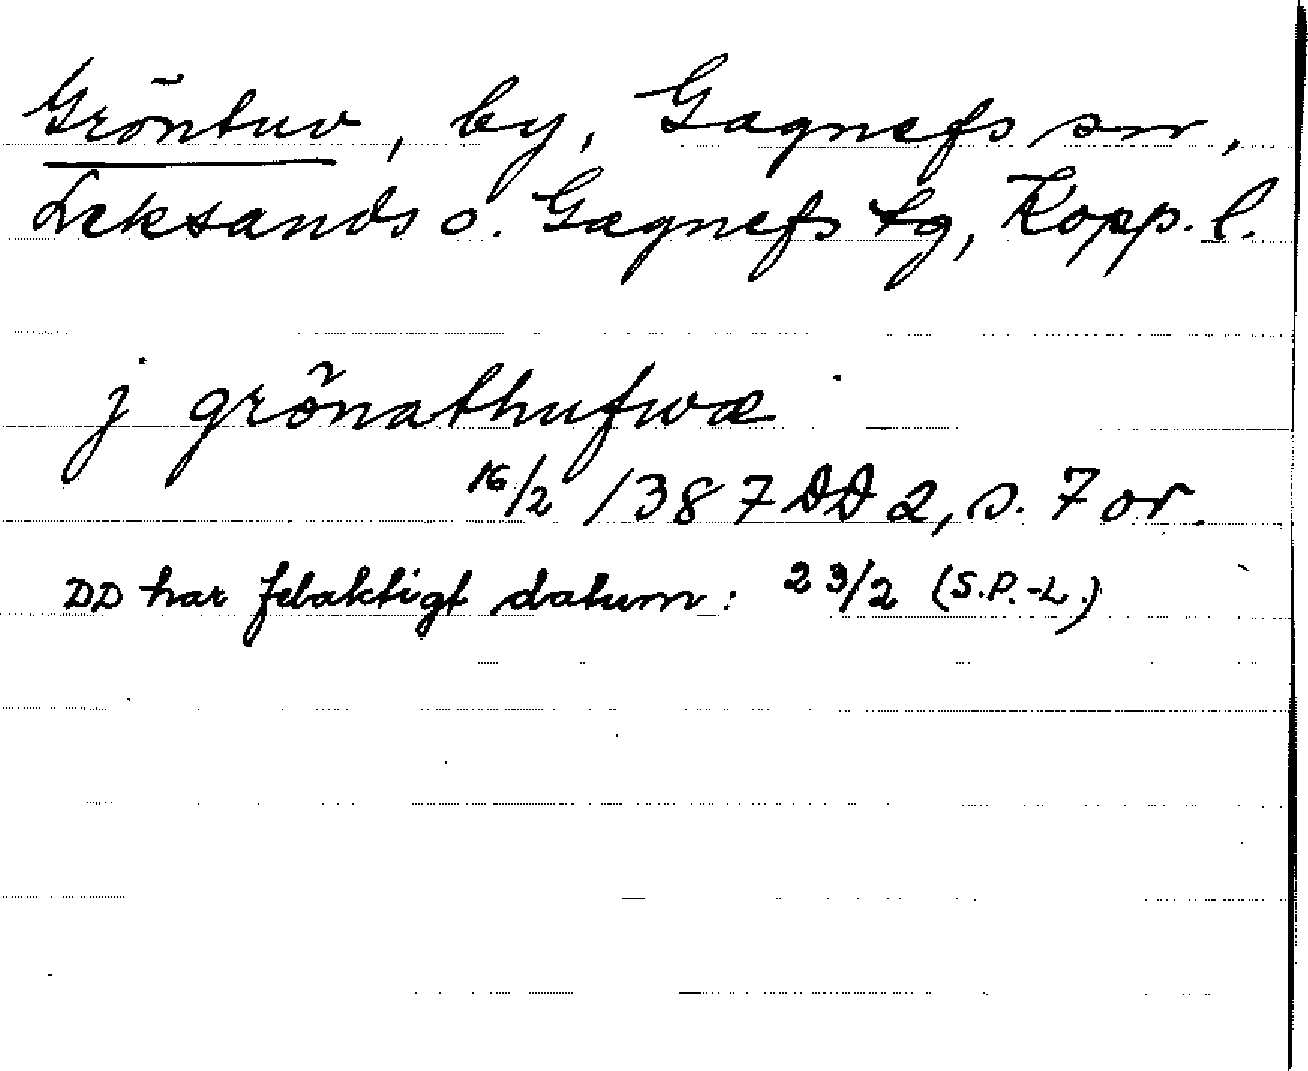 Gröntuv, by, Gagnefs sn,
Leksands o. Gagnefs tg, Kopp. l.
j grönathufwæ
16/2 1387 DD 2, s. 7 or.
DD har felaktigt datum: 23/2 (S.P.-L.)